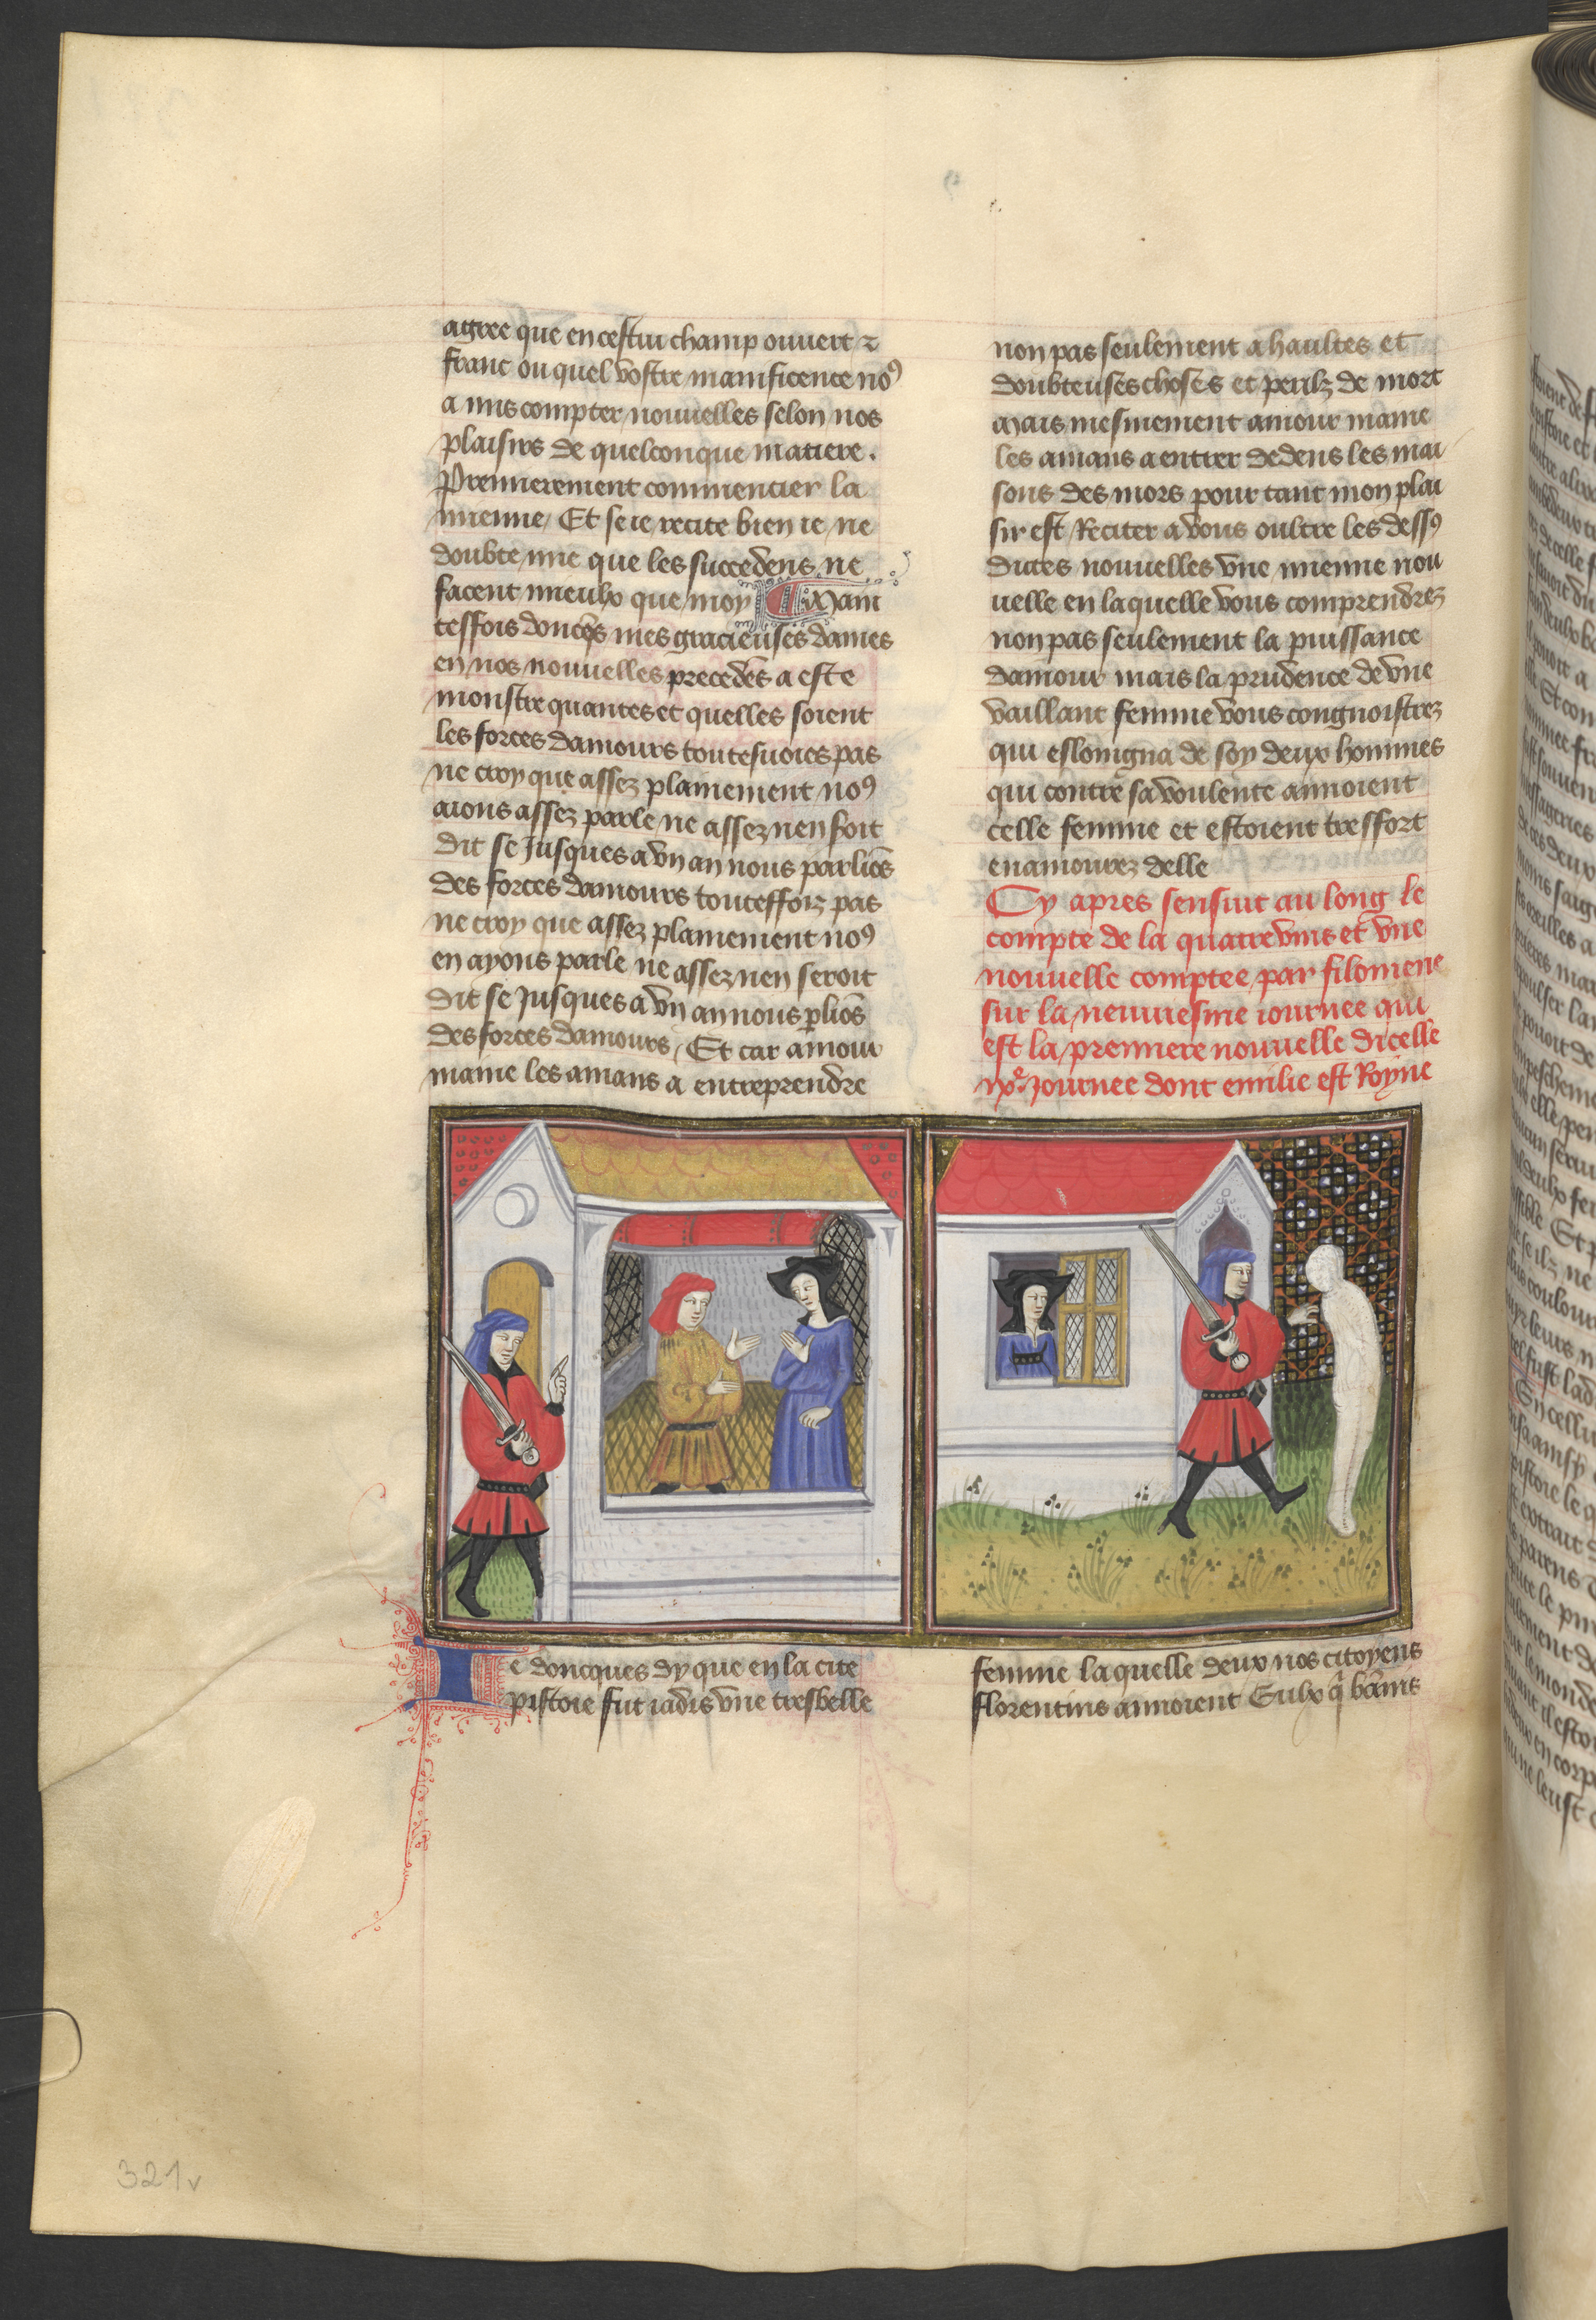 agree que en cestui champ ouvert ⁊
franc ou quel vostre manificence noꝰ
a mis compter nouuelles selon nos
plaisirs de quelconque matiere.
Premierement commencier la
mienne / Et se ie recite bien ie ne
doubte mie que les succedens ne
facent mieulx que moy Main
teffois doncqs mes gracieuses dames
en nos nouuelles precedẽs a este
monstre quantes et quelles soient
les forces damours toutesuoies pas
ne croy que assez plainement noꝰ
aions assez parle ne assez nen soit
dit se Jusques a vn an nous parliõs
des forces damours touteffoiz pas
ne croy que assez plainement noꝰ
en ayons parle ne assez nen seroit
dit se Jusques a vn an nous ꝑliõs
des forces damours / Et car amour
maine les amans a entreprendre
non pas seulement a haultes et
doubteuses choses et perilz de mort
Mais mesmement amour maine
les amans a entrer dedens les mai
sons des mors pour tant mon plai
sir est Reciter a vous oultre les dessꝰ
dictes nouuelles vne mienne nou
uelle en laquelle vous comprendrez
non pas seulement la puissance
damour mais la prudence de vne
vaillant femme vous congnoistrez
qui eslongna de soy deux hommes
qui contre sa voulente amoient
celle femme et estoient tresfort
enamourez delle
Cy apres sensuit au long le
compte de la quatrevins et vne
nouuelle comptee par filomene
sur la neuuiesme iournee qui
est la premiere nouuelle dicelle
ixᵉ Journee dont emilie est Royne
Ie doncques dy que en la cite
pistoie fut iadis vne tresbelle
femme laquelle deux nos citoyens
florentins amoient Eulx q̃ bãnis
321v